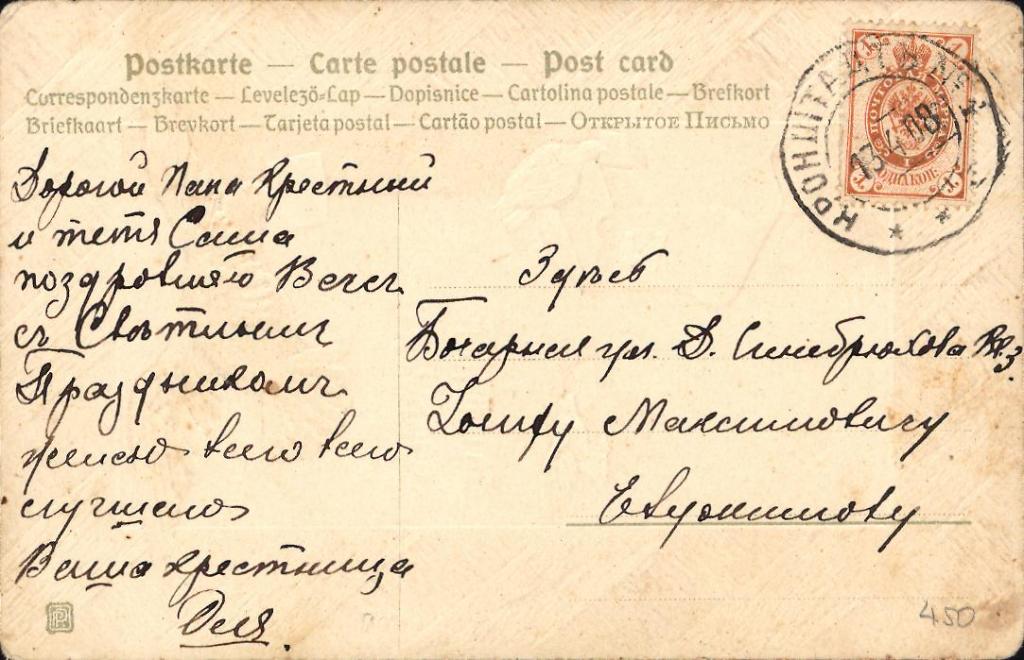 Postkarte — Carte postale — Post card
Correspondenzkarte — Levelező-Lap — Dopisnice — Cartolina postale — Brefkort
Briefkaart — Brevkort — Tarjeta postal — Cartão postal — Открытое Письмо
КРОНШТАДТ
13 4 08
Дорогой Папа Крестный
и тетя Саша
поздровляю Васъ
съ Светлымъ
Праздникомъ
желаю всего всего
лучшаго
Ваша крестница
Оля.
Здѣсь
Бочарная ул. Д. Синебрюхова кв. 3.
Максимовичу
Евдокимову
4.50